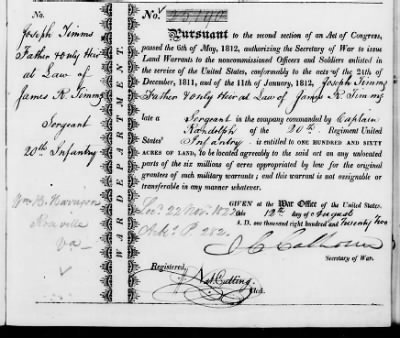 No.
Joseph Timms
Father & only Heir
at Law of
James R. Timms
Sergeant
20th Infantry
Va
WAR DEPARTMENT.
No. 25,190
Pursuant to the second section of an Act of Congress,
passed the 6th of May, 1812, authorizing the Secretary of War to issue
Land Warrants to the noncommissioned Officers and Soldiers enlisted
in the service of the United States, conformably to the acts of the 24th of
December, 1811, and of the 11th of January, 1812, Joseph Timms
Father & only Heir at Law of James R. Timms
late a Sergeant in the company commanded by Captain
Randolph of the 20th Regiment United
States' Infantry is entitled to ONE HUNDRED AND SIXTY
ACRES OF LAND, to be located agreeably to the said act on any unlocated
parts of the six millions of acres appropriated by law for the original
grantees of such military warrants; and this warrant is not assignable
or transferable in any manner whatever.
GIVEN at the War Office of the United States,
this 12th day of August
A. D. one thousand eight hundred and twenty two
Loc. 22 Nov. 1822
P. 282.
J C Calhoun
Secretary of War.
Registered,
Nat. Cutting,
Clk.